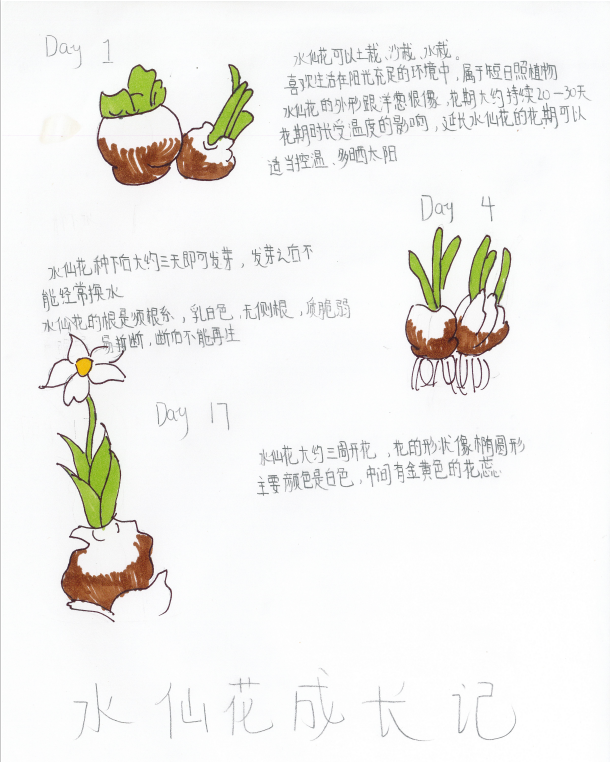 Day 1
水仙花可以土栽、沙栽、水栽。
喜欢生活在阳光充足的环境中，属于短日照植物
水仙花的外形跟洋葱很像，花期大约持续20—30天
花期时长受温度的影响，延长水仙花的花期可以
适当控温、多晒太阳
Day 4
水仙花种下后大约三天即可发芽，发芽之后不
能经常换水
水仙花的根是须根系，乳白色，无侧根，质脆弱
易折断，断后不能再生
Day 17
水仙花大约三周开花，花的形状像椭圆形
主要颜色是白色，中间有金黄色的花蕊
水仙花成长记